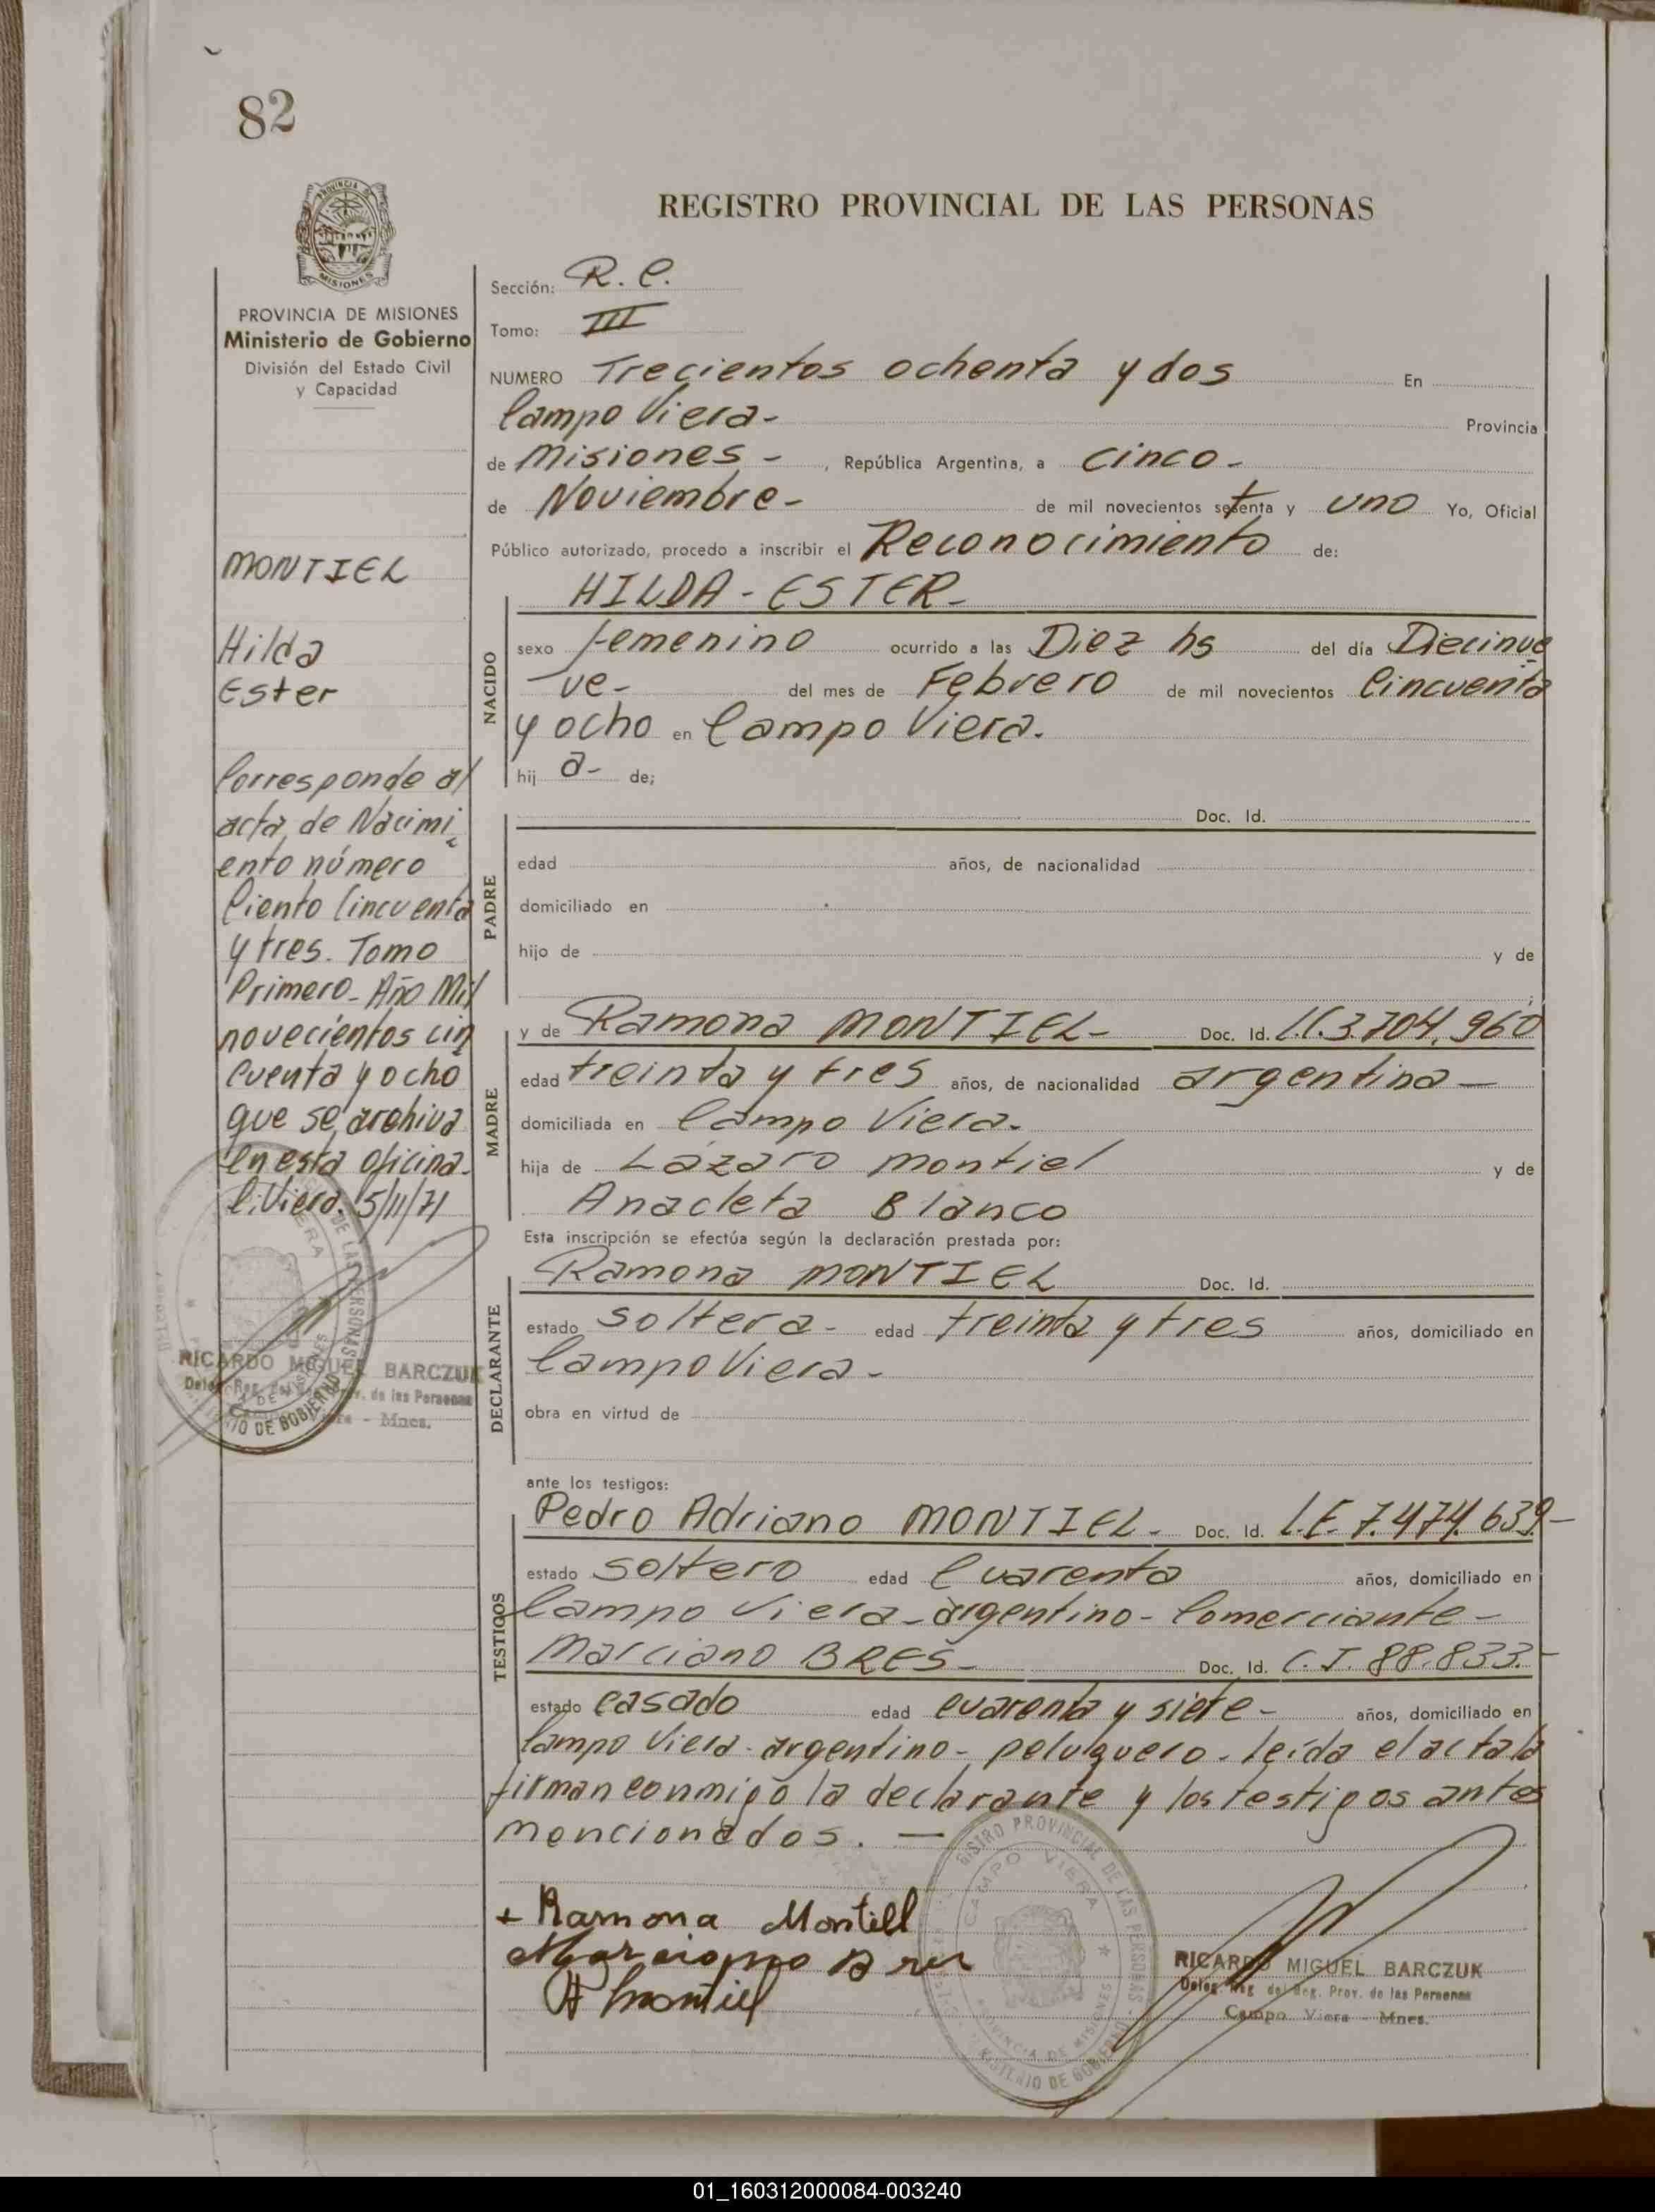 82
PROVINCIA DE
MISIONES
REGISTRO PROVINCIAL DE LAS PERSONAS
PROVINCIA DE MISIONES
Ministerio de Gobierno
División del Estado Civil
y Capacidad
MONTIEL
Hilda
Ester
Corresponde al
acta de Nacimi
ento número
Ciento Cincuenta
y tres. Tomo
Primero - Año Mil
novecientos cin
cuenta y ocho
que se archiva
en esta oficina.
C. Viera. 5/11/71
RICARDO MIGUEL BARCZUK
Prov. de las Personas
Mnes.
Sección: R. C.
Tomo: III
NUMERO Trecientos ochenta y dos En
Campo Viera -
Provincia
de Misiones - , República Argentina, a cinco -
de Noviembre - de mil novecientos setenta y uno Yo, Oficial
Público autorizado, procedo a inscribir el Reconocimiento de:
NACIDO
HILDA - ESTER -
sexo femenino ocurrido a las Diez hs del día Diecinue
ve - del mes de Febrero de mil novecientos Cincuenta
y ocho en Campo Viera.
hij a - de;
PADRE
Doc. Id.
edad años, de nacionalidad
domiciliado en
hijo de y de
MADRE
y de Ramona MONTIEL - Doc. Id. L.C. 3.704.960
edad treinta y tres años, de nacionalidad argentina -
domiciliada en Campo Viera.
hija de Lázaro Montiel y de
Anacleta Blanco
Esta inscripción se efectúa según la declaración prestada por:
DECLARANTE
Ramona MONTIEL Doc. Id.
estado soltera - edad treinta y tres años, domiciliado en
Campo Viera -
obra en virtud de
ante los testigos:
TESTIGOS
Pedro Adriano MONTIEL - Doc. Id. L.E. 7.474.639 -
estado soltero edad Cuarenta años, domiciliado en
Campo Viera - argentino - Comerciante -
Marciano BRES - Doc. Id. C.I. 88.833. -
estado casado edad cuarenta y siete - años, domiciliado en
Campo Viera - argentino - peluquero - leída el acta la
firman conmigo la declarante y los testigos antes
mencionados. —
+ Ramona Montiell
Marciano Bres
A Montiel
REGISTRO PROVINCIAL DE LAS PERSONAS
CAMPO VIERA
PROVINCIA DE MISIONES
MINISTERIO DE GOBIERNO
RICARDO MIGUEL BARCZUK
Deleg. Reg. del Reg. Prov. de las Personas
Campo Viera - Mnes.
01_160312000084-003240